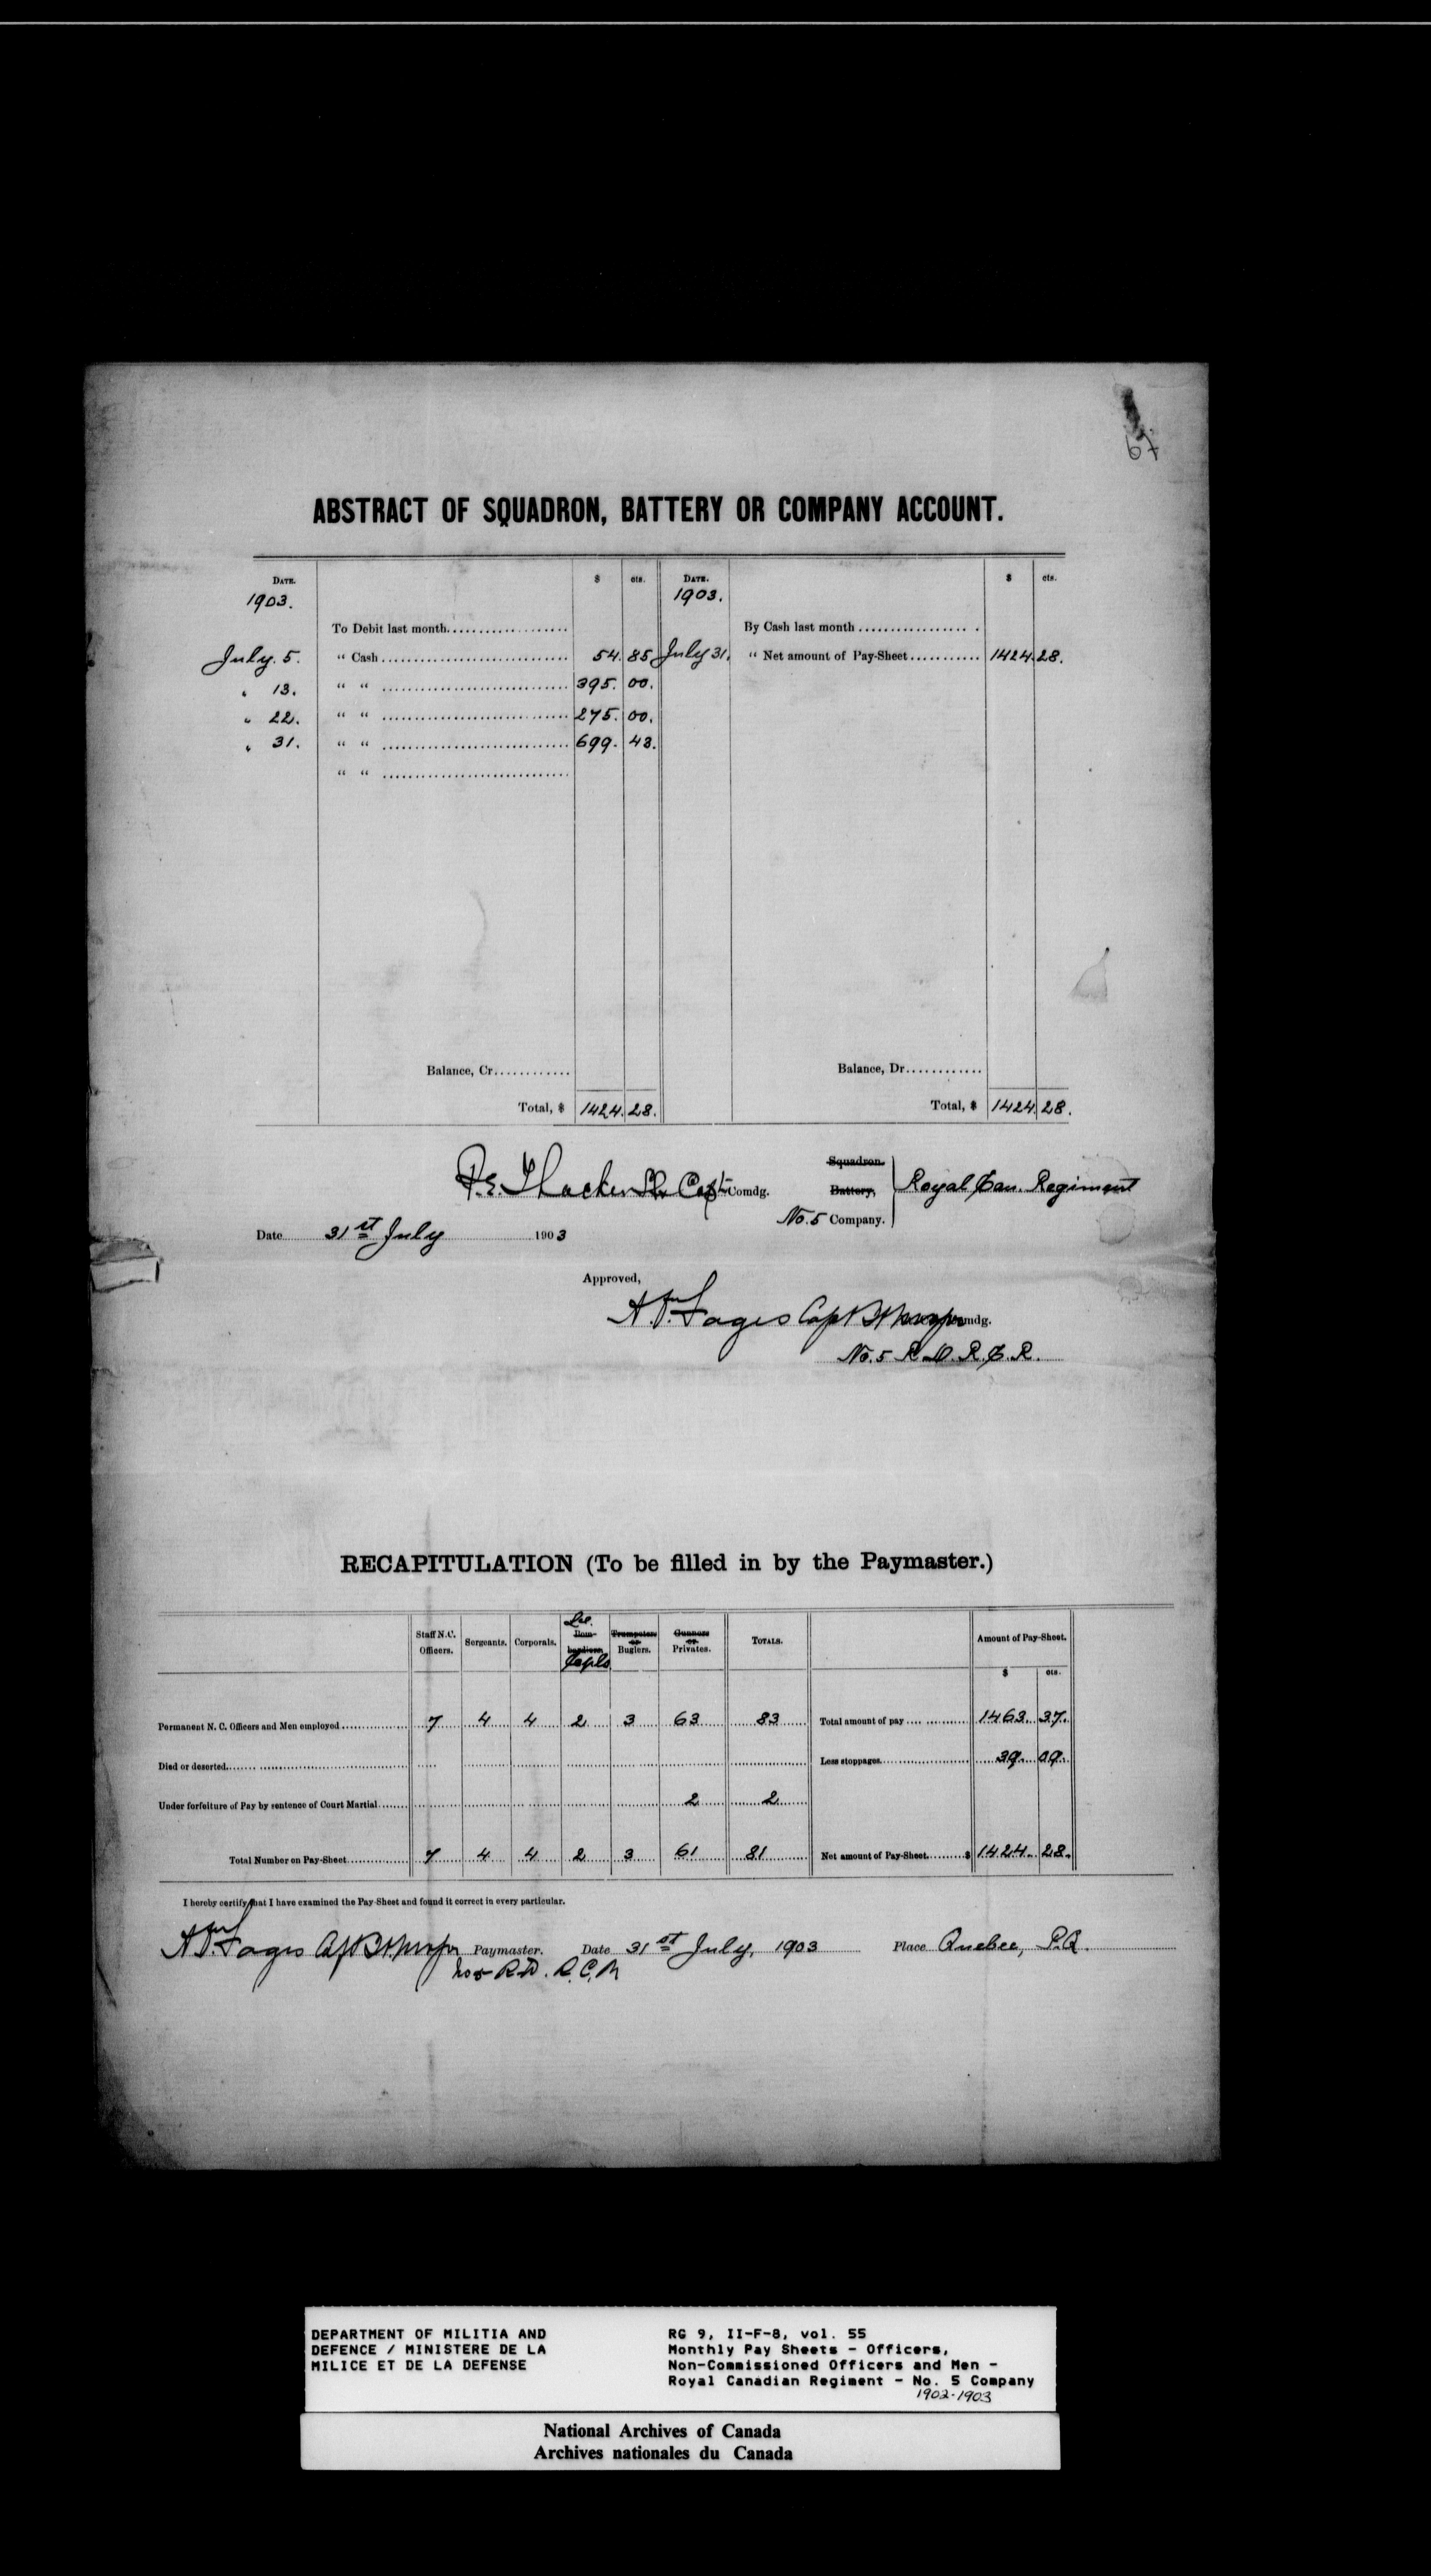 67
ABSTRACT OF SQUADRON, BATTERY OR COMPANY ACCOUNT.
DATE. $ cts. DATE. $ cts.
1903. 1903.
To Debit last month................... By Cash last month ..................
July. 5. “ Cash............................. 54. 85 July 31. “ Net amount of Pay-Sheet........... 1424. 28.
„ 13. “ “ ............................. 395. 00.
„ 22. “ “ ............................. 275. 00.
„ 31. “ “ ............................. 699. 43.
“ “ .............................
Balance, Cr............ Balance, Dr............
Total, $ 1424. 28. Total, $ 1424. 28.
Squadron.
Capt Comdg. Battery, Royal Can. Regiment
No. 5 Company.
Date 31st July 1903
Approved,
Capt Comdg.
No. 5 R.D. R.C.R.
RECAPITULATION (To be filled in by the Paymaster.)
Staff N.C. Officers. Sergeants. Corporals. Bombardiers Trumpeters or Buglers. Gunners or Privates. TOTALS. Amount of Pay-Sheet.
Corpls
$ cts.
Permanent N. C. Officers and Men employed 7 4 4 2 3 63 83 Total amount of pay 1463. 37.
Died or deserted Less stoppages 39. 09.
Under forfeiture of Pay by sentence of Court Martial 2 2
Total Number on Pay-Sheet 7 4 4 2 3 61 81 Net amount of Pay-Sheet $ 1424. 28.
I hereby certify that I have examined the Pay-Sheet and found it correct in every particular.
Paymaster. Date 31st July, 1903 Place Quebec, P.Q.
No 5 R.D. R.C.R
DEPARTMENT OF MILITIA AND
DEFENCE / MINISTERE DE LA
MILICE ET DE LA DEFENSE
RG 9, II-F-8, vol. 55
Monthly Pay Sheets - Officers,
Non-Commissioned Officers and Men -
Royal Canadian Regiment - No. 5 Company
1902-1903
National Archives of Canada
Archives nationales du Canada